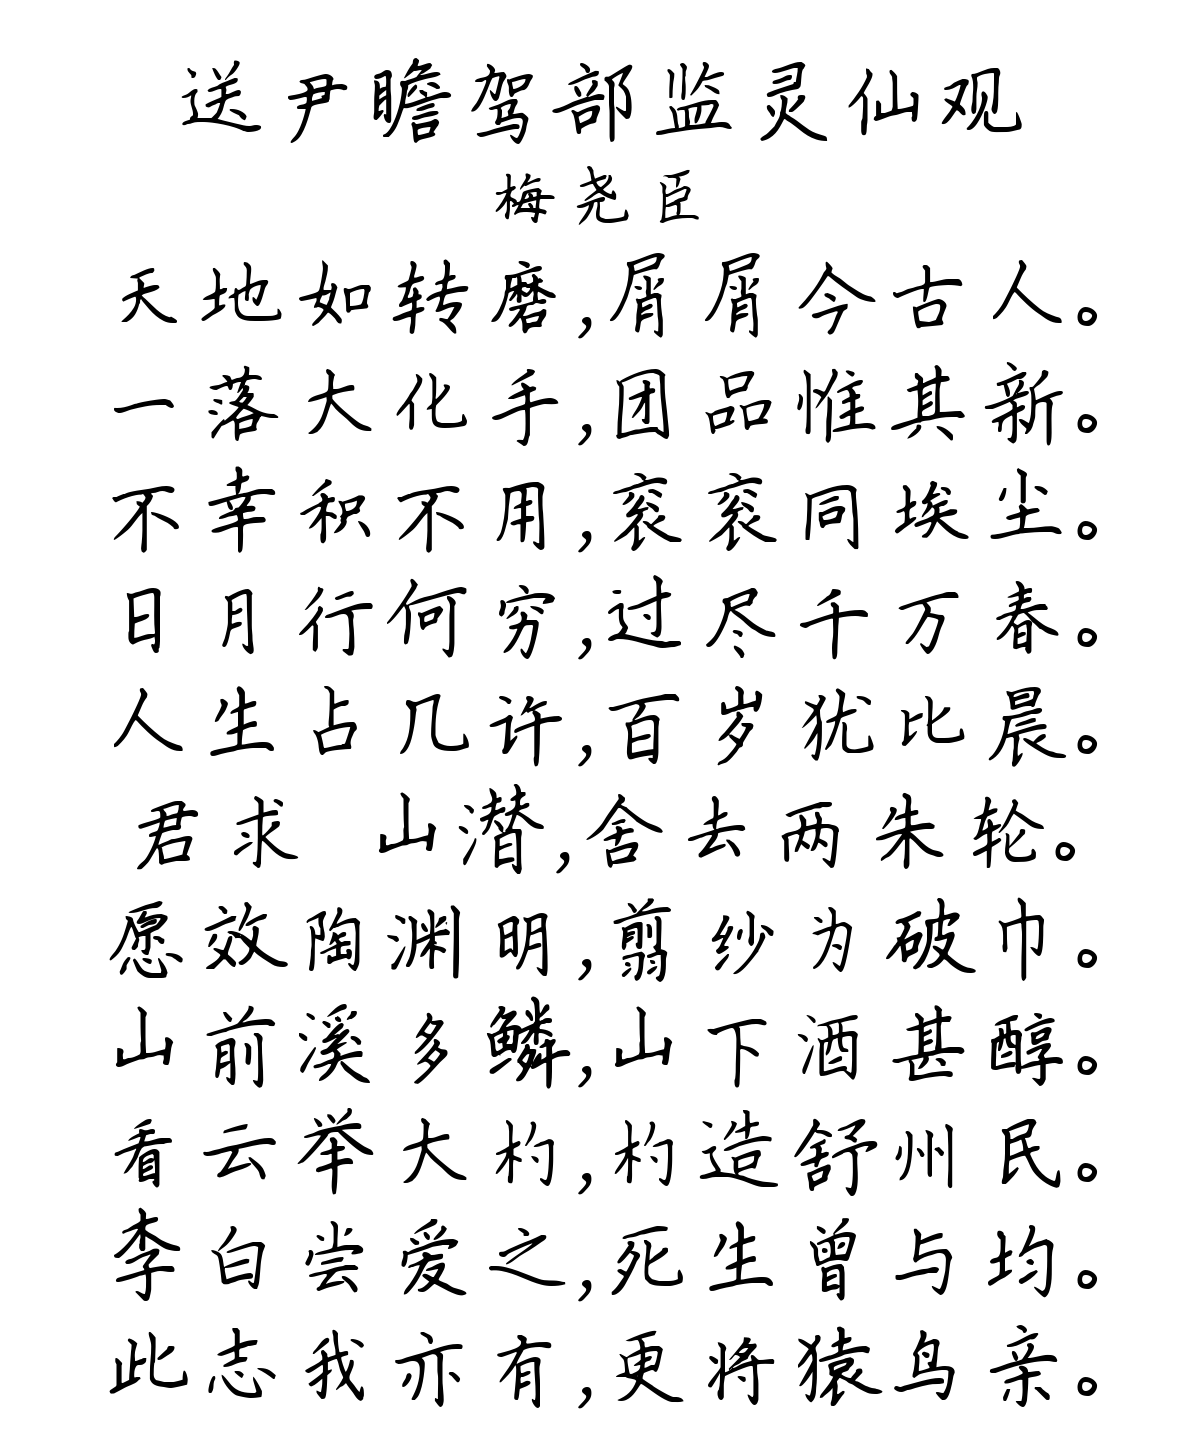 送尹瞻驾部监灵仙观
梅尧臣
天地如转磨,屑屑今古人。
一落大化手,团品惟其新。
不幸积不用,衮衮同埃尘。
日月行何穷,过尽千万春。
人生占几许,百岁犹比晨。
君求 山潜,舍去两朱轮。
愿效陶渊明,翦纱为破巾。
山前溪多鳞,山下酒甚醇。
看云举大杓,杓造舒州民。
李白尝爱之,死生曾与均。
此志我亦有,更将猿鸟亲。